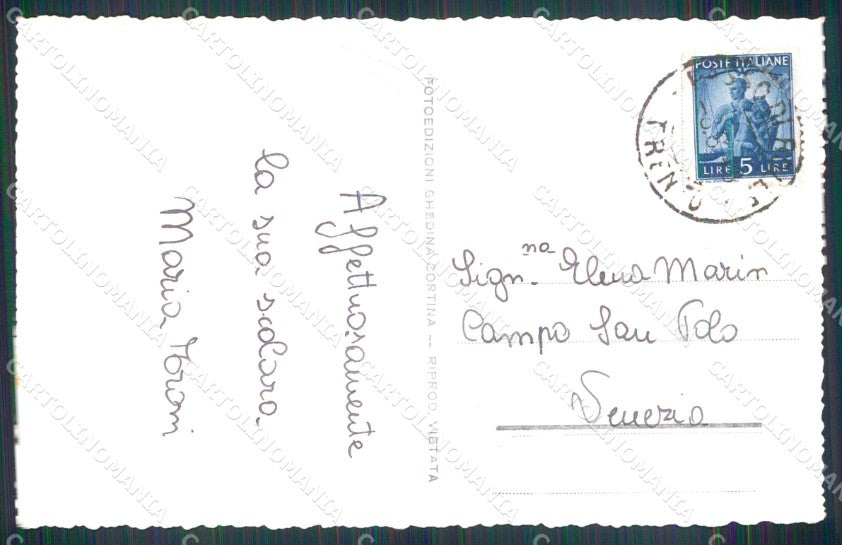 Affettuosamente
la sua scolara
Maria
FOTOEDIZIONI GHEDINA CORTINA — RIPROD. VIETATA
POSTE ITALIANE
LIRE 5 LIRE
TRENTO
Sign.na Elena Marin
Campo San Polo
Venezia
CARTOLINOMANIA